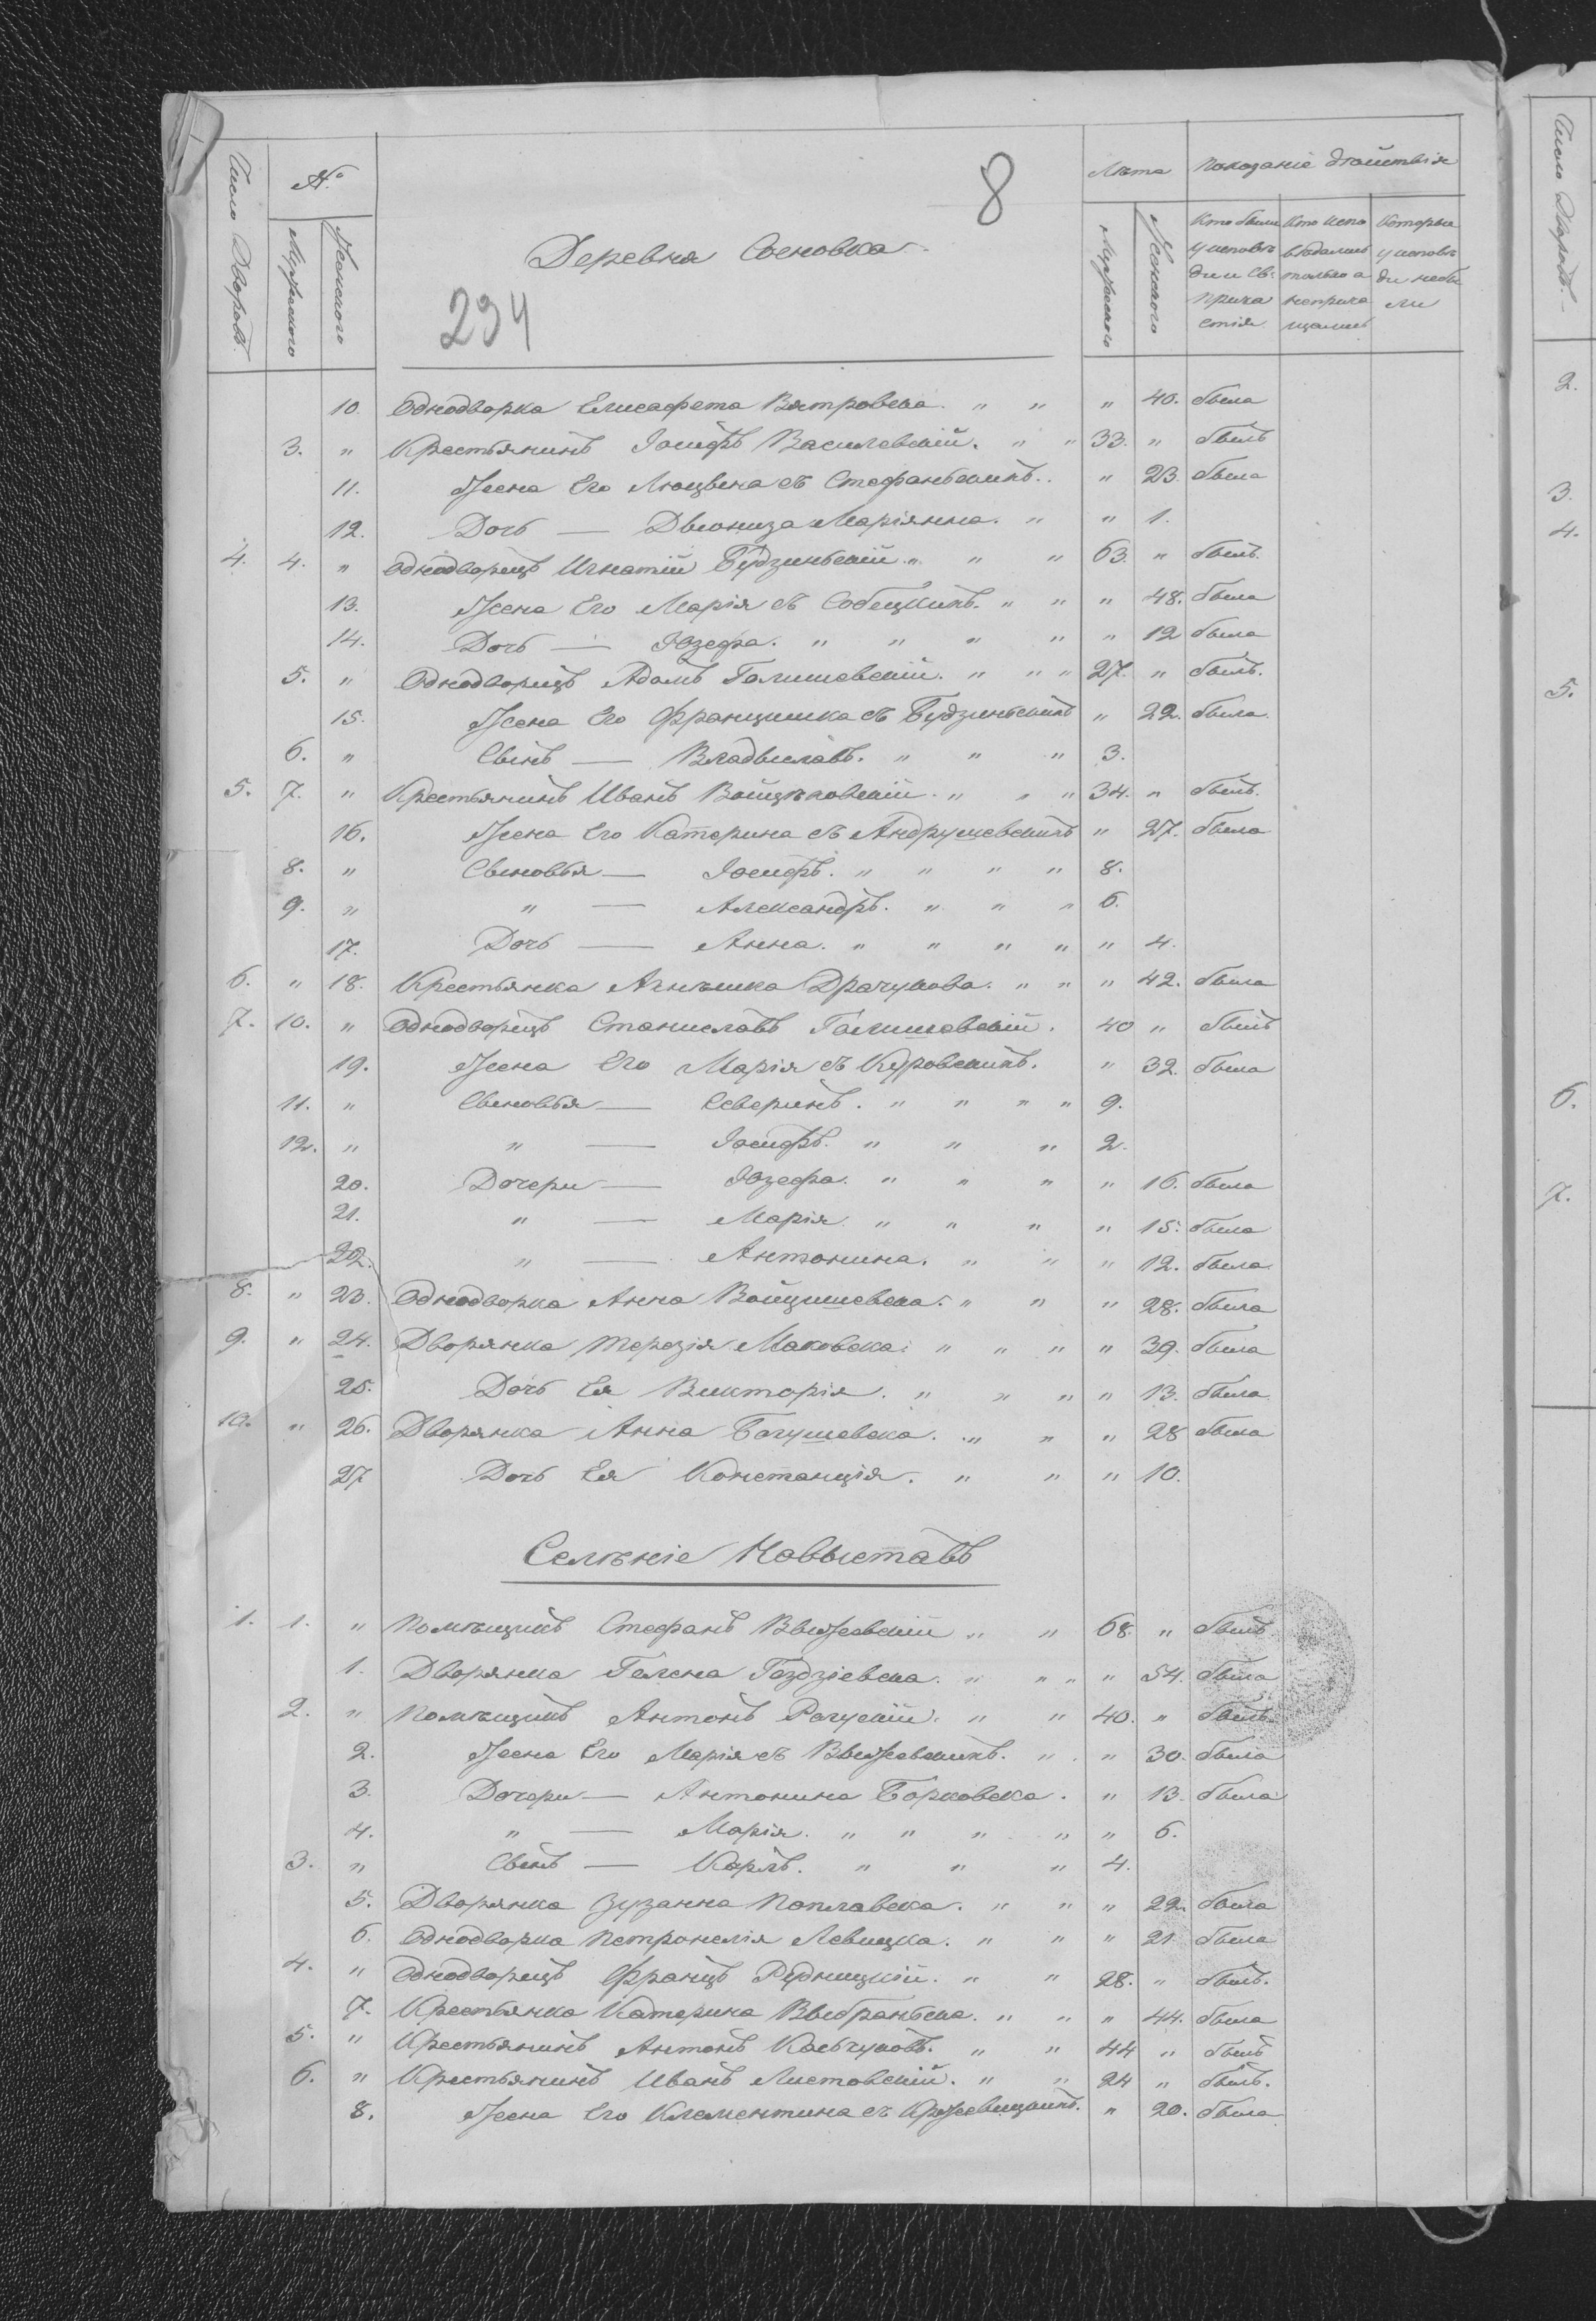 8
Число Дворовъ.
№
Мужескаго
Женскаго
Деревня Сосновка
234
Лѣта
Мужескаго
Женскаго
Показаніе дѣйствія
Кто были у исповѣди и Св. причастія
Кто исповѣдались только а непричащались
Которые у исповѣди небыли
10. Однодворка Елисафета Вятровска. " " " 40. была
3. " Крестьянинъ Іосифъ Василевскій. " " 33. " былъ
11. Жена Его Людвика съ Стефаньскихъ. " 23. была
12. Дочь — Діониза Маріянна. " " 1.
4. 4. " Однодворецъ Игнатій Будзиньскій " " " 63. " былъ.
13. Жена Его Марія съ Собецкихъ. " " " 48. была
14. Дочь — Юзефа. " " " " " 12 была
5. " Однодворецъ Адамъ Галишевскій. " " " 27. " былъ.
15. Жена Его Францишка съ Будзиньскихъ " 22. была.
6. " Сынъ — Владыславъ. " " " 3.
5. 7. " Крестьянинъ Иванъ Войцѣховскій. " " " 34. " былъ.
16. Жена Его Катерина съ Андрушевскихъ " 27. была
8. " Сыновья — Іосифъ. " " " " 8.
9. " " — Александръ. " " " 6.
17. Дочь — Анна. " " " " " 4.
6. " 18. Крестьянка Агнѣшка Драчукова. " " " 42. была
7. 10. " Однодворецъ Станиславъ Галишевскій. 40 " былъ
19. Жена Его Марія съ Куровскихъ. " 32. была
11. " Сыновья — Северинъ. " " " " 9.
12. " " — Іосифъ. " " " 2.
20. Дочери — Юзефа. " " " " 16. была
21. " — Марія. " " " " 15. была
22. " — Антонина. " " " 12. была.
8. " 23. Однодворка Анна Войцишевска. " " " 28. была
9. " 24. Дворянка Терезія Маковска. " " " " 39. была
25. Дочь Ея Викторія. " " " " 13. была.
10. " 26. Дворянка Анна Богушевска. " " " 28 была
27 Дочь Ея Констанція. " " " 10.
Селѣніе Новыставъ
1. 1. " Помѣщикъ Стефанъ Выжевскій " " 68. " былъ
1. Дворянка Галена Гоздзіевска. " " " " 54. была
2. " Помѣщикъ Антонъ Рогускій. " " 40. " былъ.
2. Жена Его Марія съ Выжевскихъ. " " 30. была
3. Дочери — Антонина Борковска. " 13. была
4. " — Марія. " " " " " 6.
3. " Сынъ — Карлъ. " " " 4.
5. Дворянка Зузанна Поплавска. " " " 22. была
6. Однодворка Петронелія Левицка. " " " 21 была
4. " Однодворецъ Францъ Рудницкій. " " 28. " былъ.
7. Крестьянка Катерина Выбраньска. " " " 44. была
5. " Крестьянинъ Антонъ Касьчуковъ. " " 44 " былъ
6. " Крестьянинъ Иванъ Листовскій. " " 24 " былъ.
8. Жена Его Клементина съ Кржевицкихъ. " 20. была
Число Дворовъ.
2.
3.
4.
5.
6.
7.